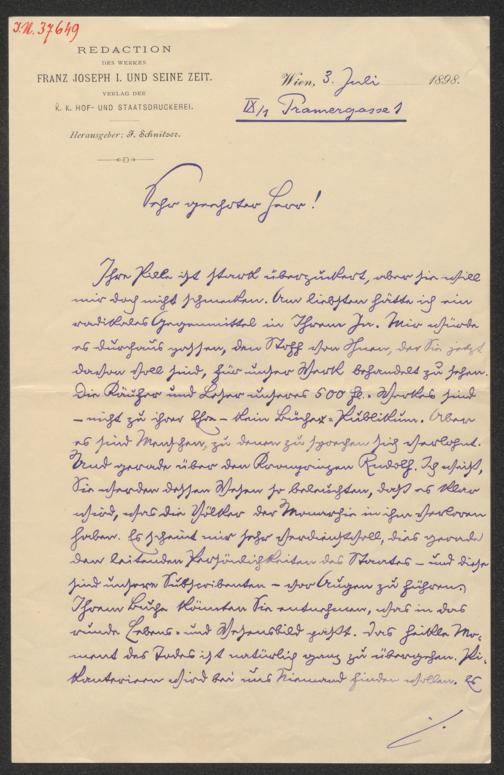 I.N. 37649
REDACTION
DES WERKES
FRANZ JOSEPH I. UND SEINE ZEIT.
VERLAG DER
K. K. HOF- UND STAATSDRUCKEREI.
Herausgeber: J. Schnitzer.
Wien, 3. Juli 1898.
IX/1 Pramergasse 1
Sehr geehrter Herr!
Ihre Pille ist stark überzuckert, aber sie will
mir doch nicht schmecken. Am liebsten hätte ich ein
radikales Gegenmittel in Ihrem Ja. Mir würde
es durchaus passen, den Stoff von Ihnen, der Sie jetzt
davon voll sind, für unser Werk behandelt zu sehen.
Die Käufer und Leser unseres 500 fl.-Werkes sind
– nicht zu ihrer Ehre – kein Bücher-Publikum. Aber
es sind Menschen, zu denen zu sprechen sich verlohnt.
Und gerade über den Kronprinzen Rudolf. Ich weiß,
Sie werden dessen Wesen so beleuchten, daß es klar
wird, was die Völker der Monarchie in ihm verloren
haben. Es scheint mir sehr verdienstvoll, dies gerade
den leitenden Persönlichkeiten des Staates – und diese
sind unsere Subscribenten – vor Augen zu führen.
Ihrem Buche könnten Sie entnehmen, was in das
runde Lebens- und Wesensbild paßt. Das heikle Mo-
ment des Todes ist natürlich ganz zu übergehen. Pi-
kanterieen wird bei uns Niemand finden wollen. Es